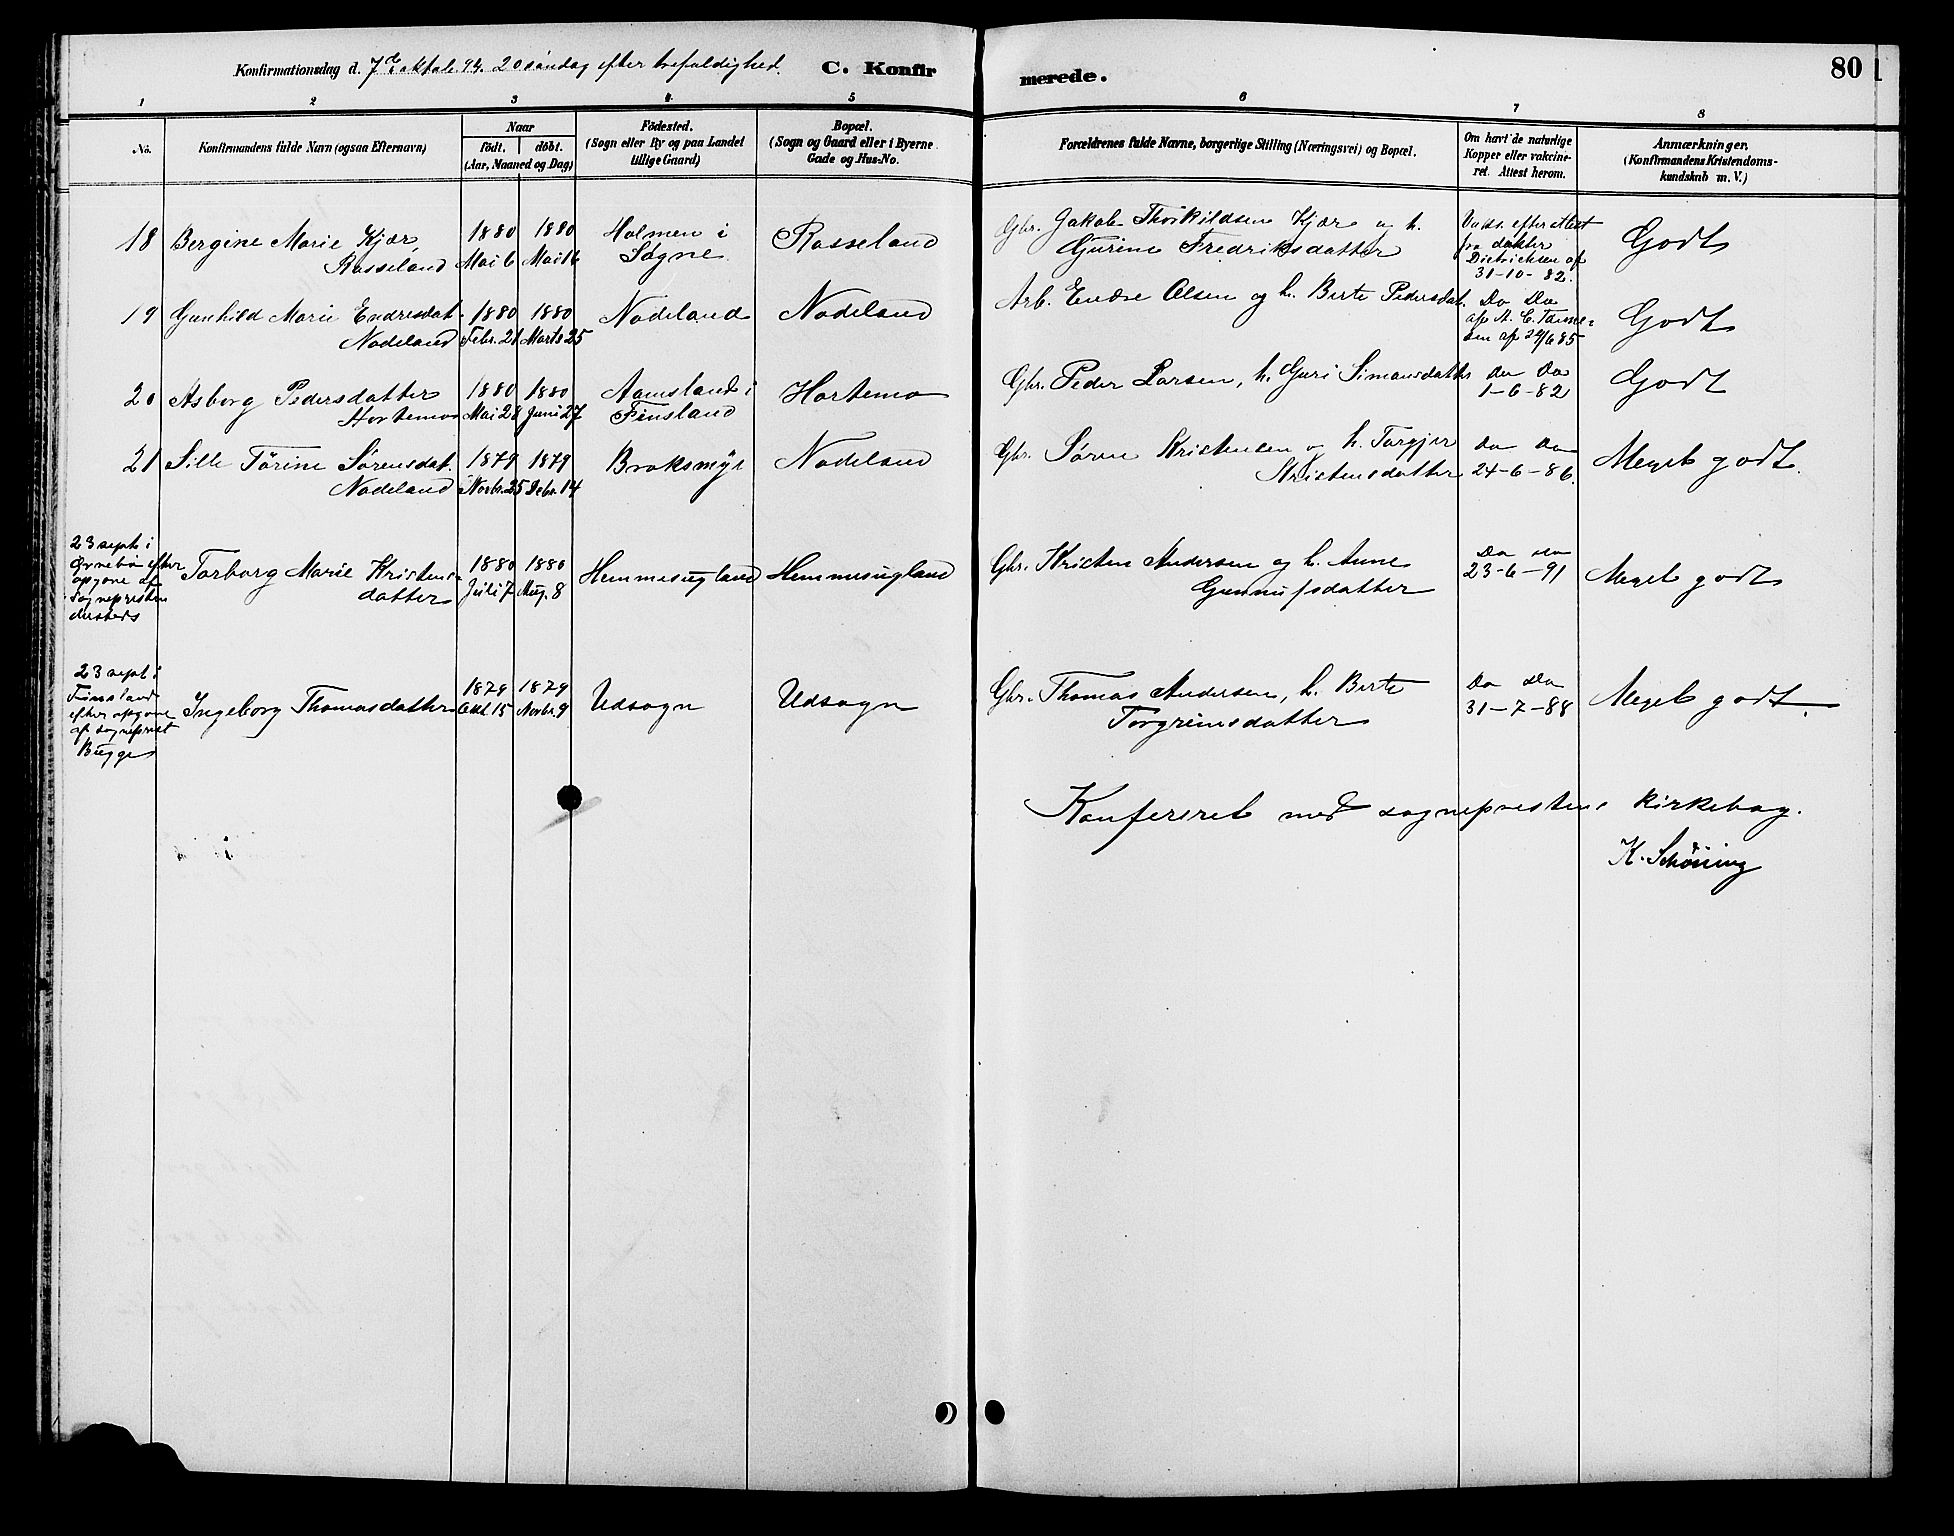 Konfirmationsdag d. 7de oktob. 94. 20 søndag efter trefoldighed.
C. Konfirmerede.
80
1 2 3 4. 5 6 7 8
No.
Konfirmandens fulde Navn (ogsaa Efternavn)
Naar
födt. döbt.
(Aar, Maaned og Dag)
Födested.
(Sogn eller By og paa Landet
tillige Gaard)
Bopæl.
(Sogn og Gaard eller i Byerne
Gade og Hus-No.
Forældrenes fulde Navne, borgerlige Stilling (Næringsvei) og Bopæl.
Om havt de naturlige
Kopper eller vakcine-
ret. Attest herom.
Anmærkninger.
(Konfirmandens Kristendoms-
kundskab m. V.)
18 Bergine Marie Kjær,
Rosseland
1880
Mai 6
1880
Mai 16
Holmen i
Søgne
Rosseland
Gbr. Jakob Thorkildsen Kjær og h.
Gurine Fredriksdatter
Vaks. efter attest
fra doktor
Dietrichsen af
31-10-82.
Godt
19 Gunhild Marie Endresdat.
Nodeland
1880
Febr. 21
1880
Marts 25
Nodeland
Nodeland
Arb. Endre Olsen og h. Berte Pedersdat.
Do Do
af A. C. 
sen af 24/6 85
Godt
20 Asborg Pedersdatter
Hortemo
1880
Mai 28
1880
Juni 27
Aamsland i
Finsland
Hortemo
Gbr. Peder Larsen, h. Guri Simonsdatter
Do Do
1-6-82
Godt
21 Sille Tørine Sørensdat.
Nodeland
1879
Novbr. 25
1879
Debr. 14
Broksmyr
Nodeland
Gbr. Søren Kristensen og h. Torgjer
Kristensdatter
Do Do
24-6-86.
Meget godt.
23 sept. i
Øvrebø efter
opgave af
sognepresten
dersteds
Torborg Marie Kristens-
datter
1880
Juli 7
1880
Aug. 8
Hemmesugland
Hemmesugland
Gbr. Kristen Andersen og h. Anne
Gunnufsdatter
Do Do
23-6-91
Meget godt
23 sept. i
Finsland
efter opgave
af sogneprest
Bugge
Ingeborg Thomasdatter
1879
Okt. 15
1879
Novbr. 9
Udsogn
Udsogn
Gbr. Thomas Andersen, h. Berte
Torgrimsdatter
Do Do
31-7-88
Meget godt.
Konfereret med sogneprestens kirkebog.
K. Schøning